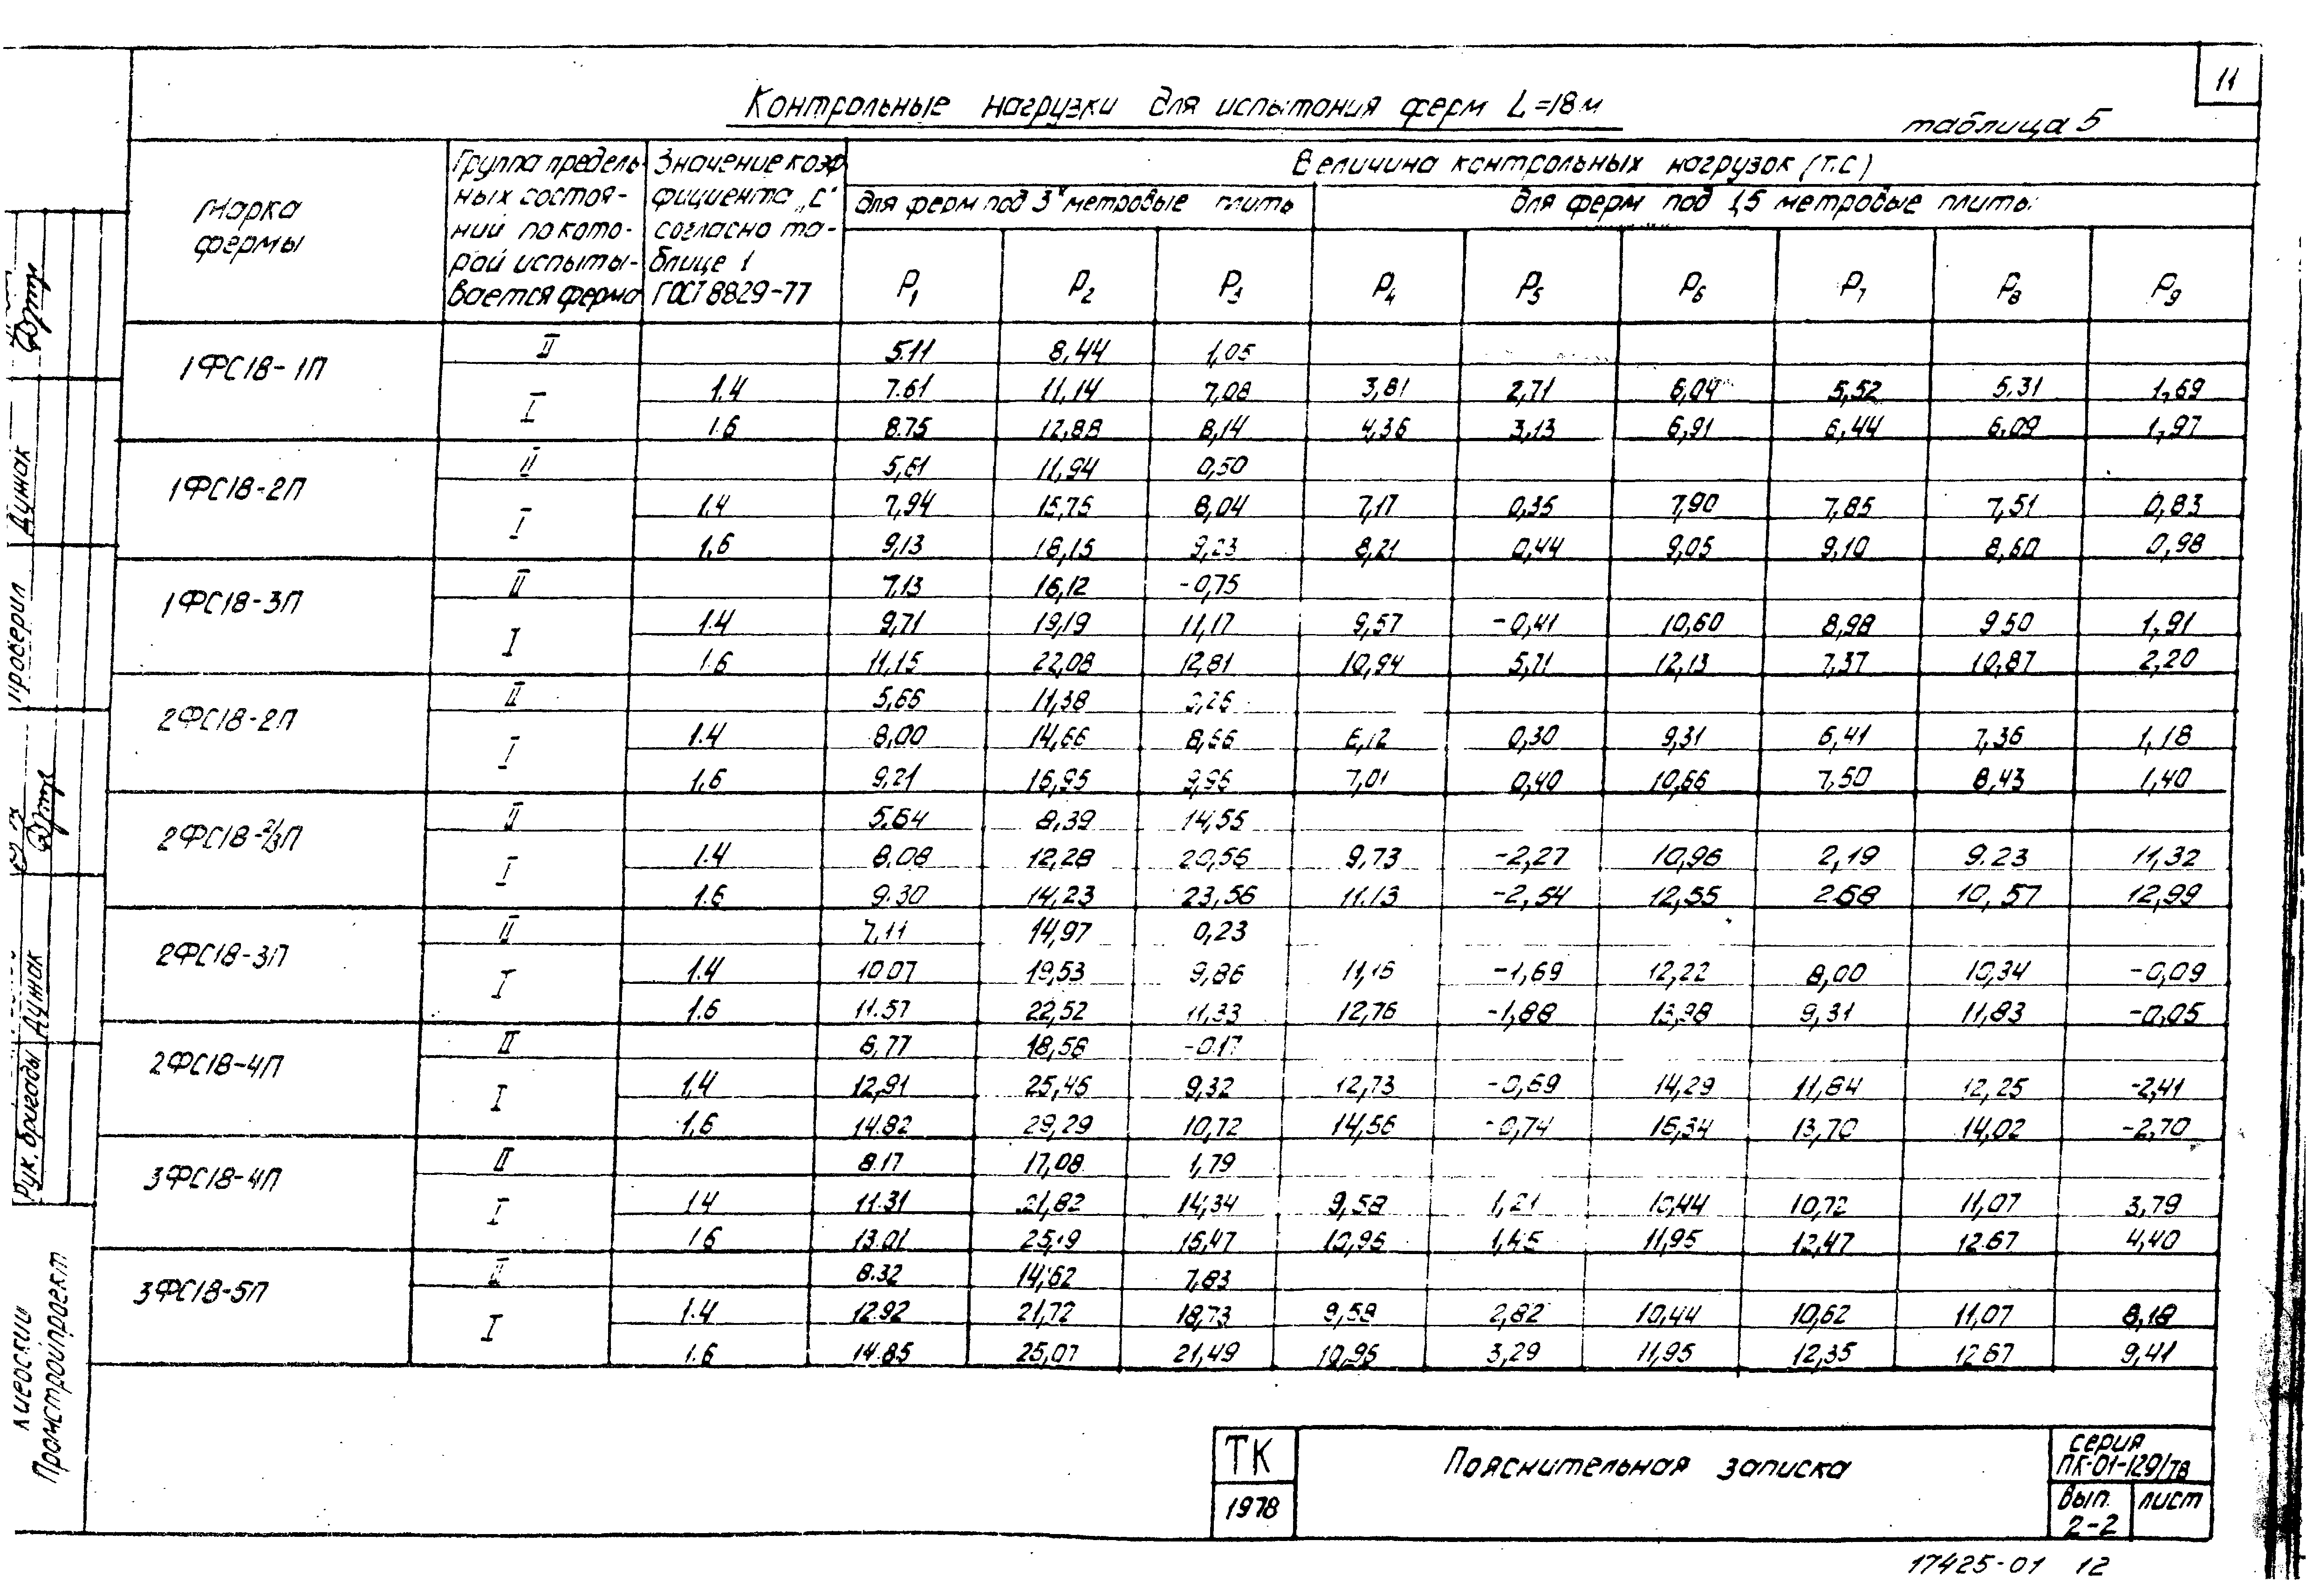 11
Контрольные нагрузки для испытания ферм L=18м
таблица 5
Марка фермы
Группа предель-
ных состоя-
ний по кото-
рой испыты-
вается ферма
Значение коэф
фициента „С"
согласно та-
блице 1
ГОСТ 8829-77
Величина контрольных нагрузок (т.с)
для ферм под 3х метровые плиты
для ферм под 1,5 метровые плиты
P1 P2 P3 P4 P5 P6 P7 P8 P9
1ФС18-1П
II 5.11 8,44 1,05
I 1.4 7.61 11,14 7,08 3,81 2,71 6,04 5,52 5.31 1,69
1.6 8.75 12,88 8,14 4,36 3,13 6,91 6,44 6,09 1,97
1ФС18-2П
II 5,61 11,94 0,50
I 1.4 7,94 15,75 8,04 7,17 0,35 7,90 7,85 7,51 0,83
1,6 9,13 18,15 9,23 8,21 0,44 9,05 9,10 8,60 0,98
1ФС18-3П
II 7.13 16,12 -0,75
I 1.4 9,71 19,19 11,17 9,57 -0,41 10,60 8,98 9.50 1,91
1.6 11,15 22,08 12,81 10,94 5,71 12,13 7,37 10,87 2,20
2ФС18-2П
II 5,66 11,38 0,26
I 1.4 8,00 14,66 8,66 6,12 0,30 9,31 6,41 7,36 1,18
1,6 9,21 16,95 9,96 7,01 0,40 10,66 7,50 8,43 1,40
2ФС18-2/3П
II 5.64 8,39 14,55
I 1.4 8.08 12,28 20,56 9,73 -2,27 10,96 2,19 9.23 11,32
1.6 9.30 14,23 23,56 11.13 -2,54 12,55 2.68 10,57 12,99
2ФС18-3П
II 7,11 14,97 0,23
I 1.4 10.07 19,53 9,86 11,16 -1,69 12,22 8,00 10,34 -0,09
1.6 11.57 22,52 11,33 12,76 -1,88 13,98 9,31 11,83 -0,05
2ФС18-4П
II 8,77 18,58 -0.17
I 1,4 12,91 25,45 9,32 12,73 -0,69 14,29 11,84 12,25 -2,41
1,6 14.82 29,29 10,72 14,56 -0,74 16,34 13,70 14,02 -2,70
3ФС18-4П
II 8.17 17,08 1,79
I 1.4 11.31 21,82 14,34 9,58 1,21 10,44 10,72 11,07 3,79
1.6 13.01 25,19 16,47 10,95 1,45 11,95 12,47 12.67 4,40
3ФС18-5П
II 8.32 14,62 7,83
I 1.4 12.92 21,72 18,73 9,58 2,82 10,44 10,62 11,07 8,18
1.6 14.85 25,07 21,49 10,95 3,29 11,95 12,35 12.67 9,41
Проверил Дужак
Рук. бригады Дужак
Киевский
Промстройпроект
ТК
1978
Пояснительная записка
серия
ПК-01-129/78
вып.
2-2
лист
17425-01 12